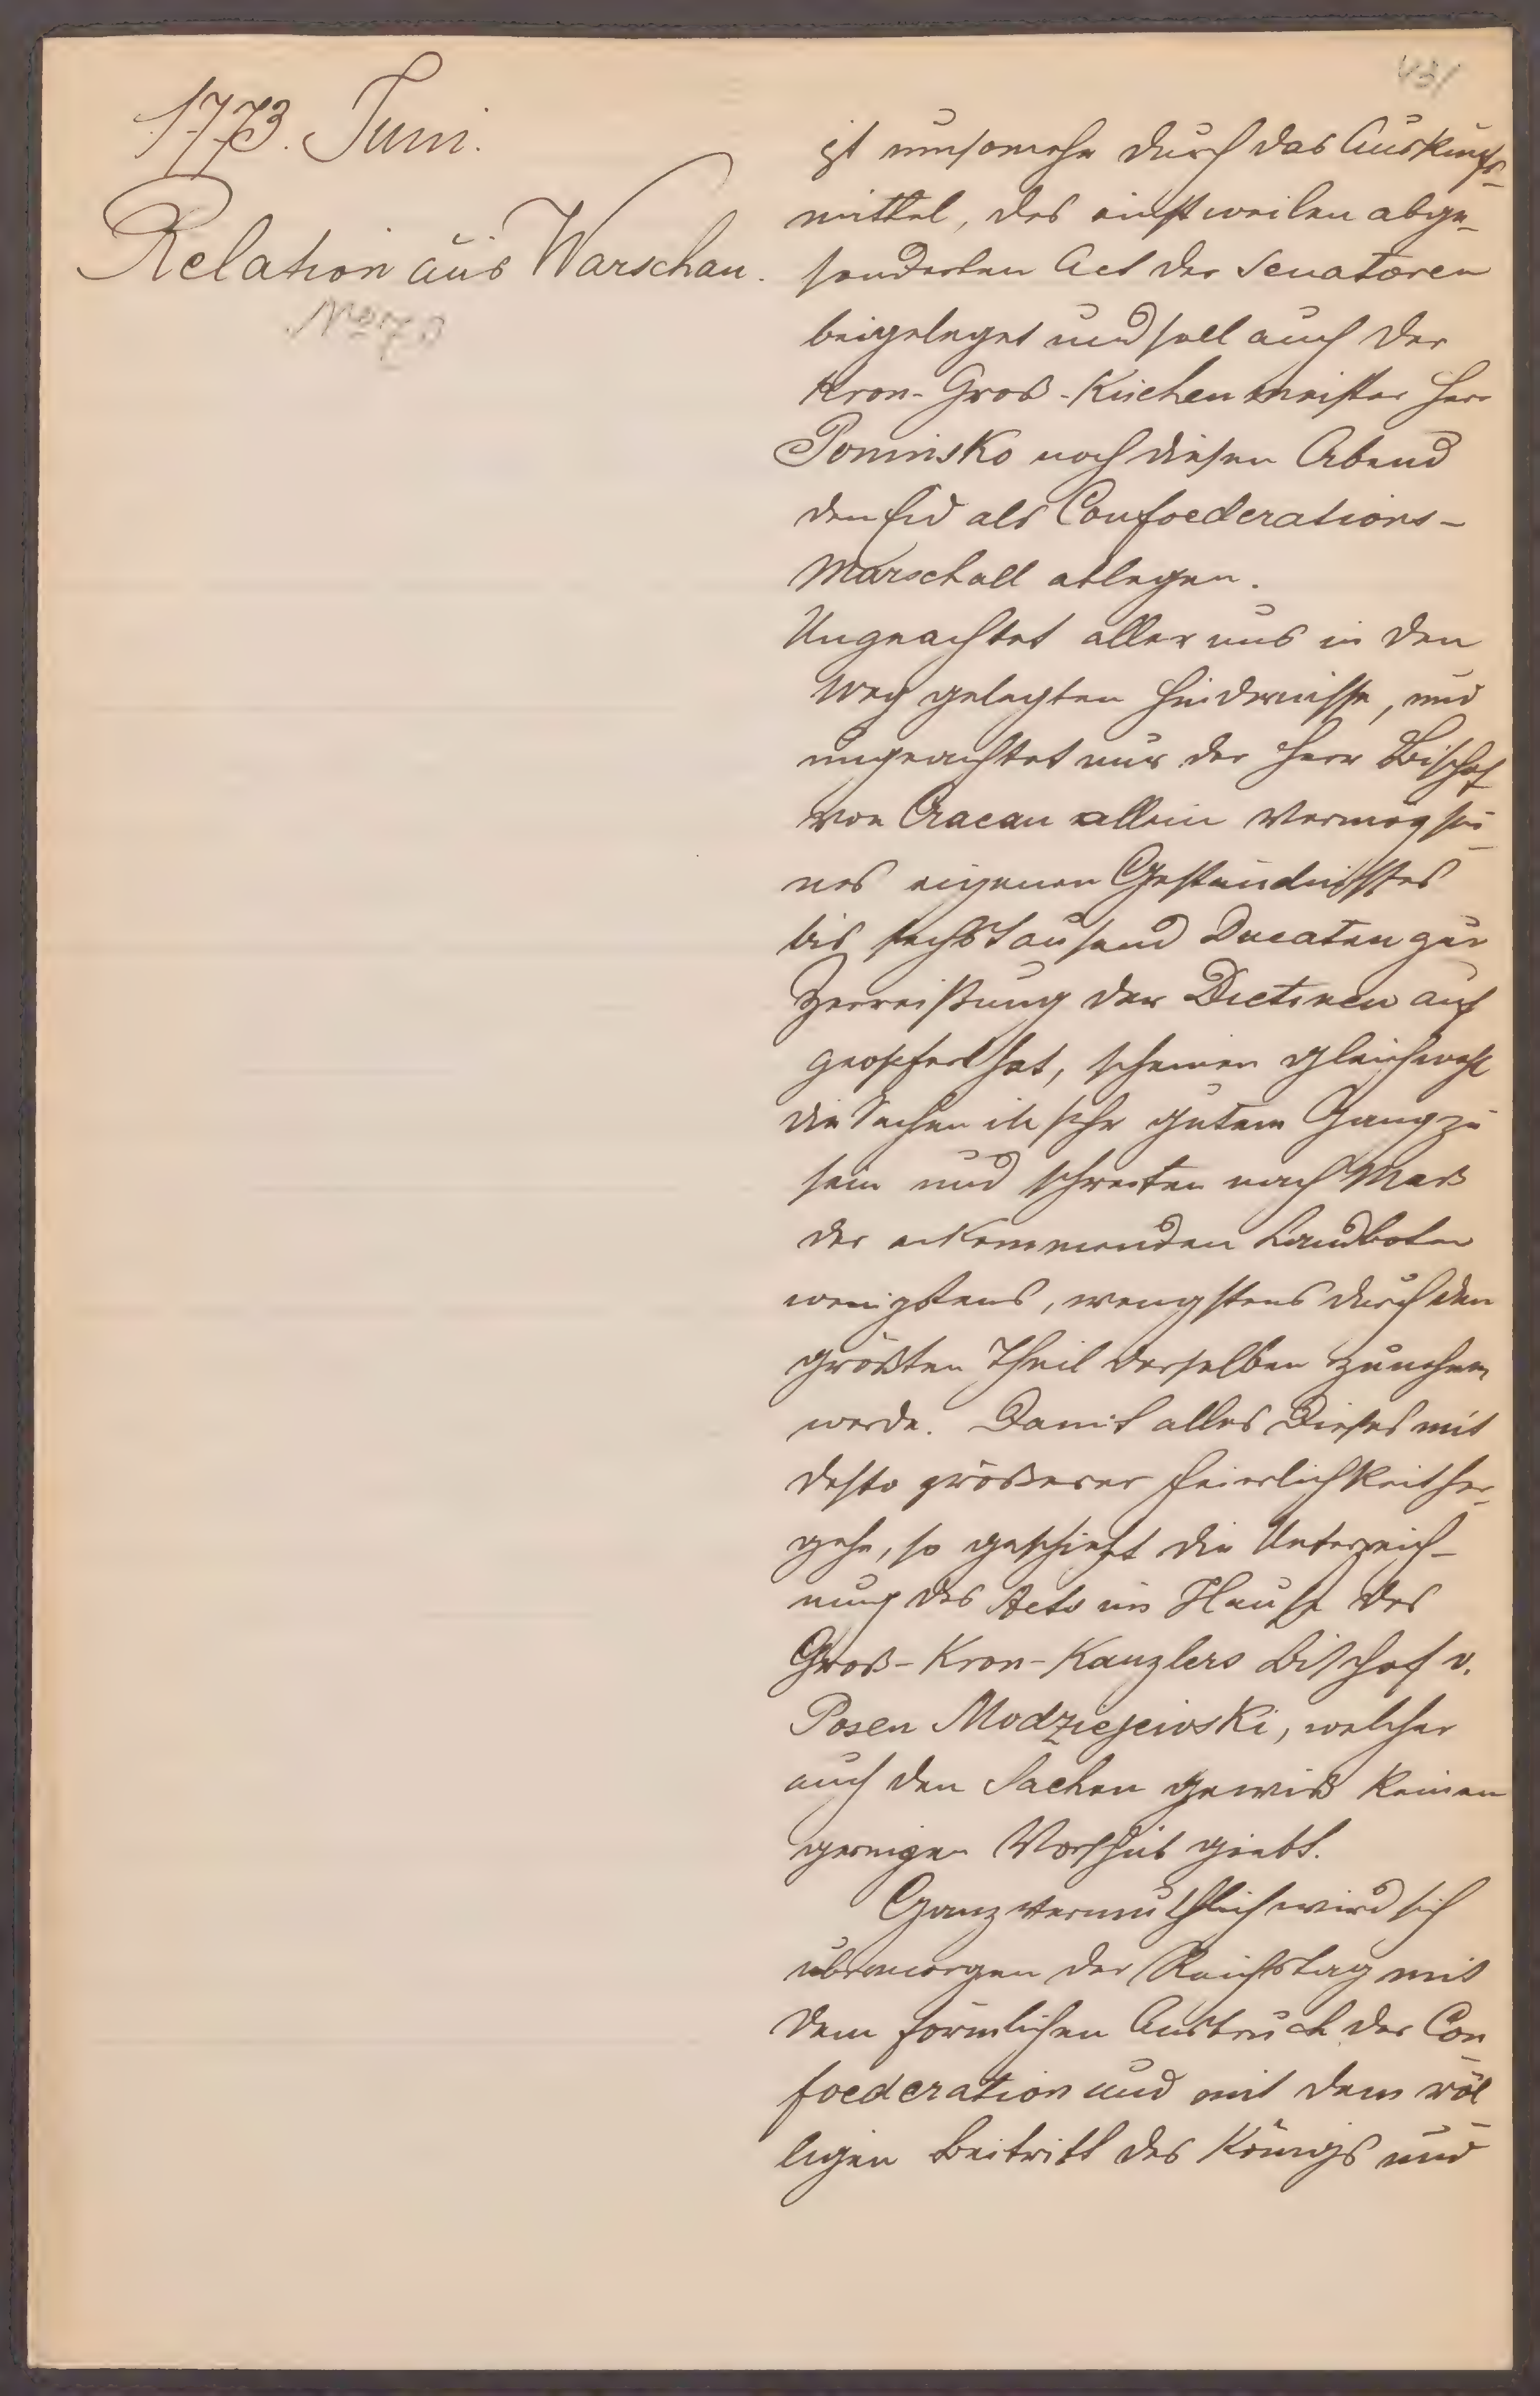 431
1773. Juni.
Relation aus Warschau.
No 73
ist umsomehr durch das Auskunfts-
mittel, des einstweilen abge-
sonderten Act der Senatoren
beigeleget und soll auch der
Kron-Groß-Küchenmeister Herr
Poninsko noch diesen Abend
den Eid als Confoederations-
Marschall ablegen.
Ungeachtet aller uns in den
Weg gelegten Hindernisse, und
ungeachtet nur der Herr Bischof
von Cracau allein vermög sei-
nes eigenen Geständnisses
bis sechstausend Ducaten zur
Zerreißung der Dietinen auf
geopfert hat, scheinen gleichwohl
die Sachen in sehr gutem Gang zu
sein und schreiten nach Maß
der ankommenden Landboten
wenigstens, wengstens durch den
größten Theil derselben zunehmen
werde. Damit alles Dieses mit
desto größerer Feierlichkeit her-
gehe, so geschieht die Unterzeich-
nung des Acts im Hause des
Groß-Kron-Kanzlers Bischof v.
Posen Modziejewski, welcher
auch den Sachen gewiß keinen
geringen Vorschub giebt.
Ganz vermuthlich wird sich
übermorgen der Reichstag mit
dem förmlichen Ausbruch der Con-
foederation und mit dem völ-
ligen Beitritt des Königs und